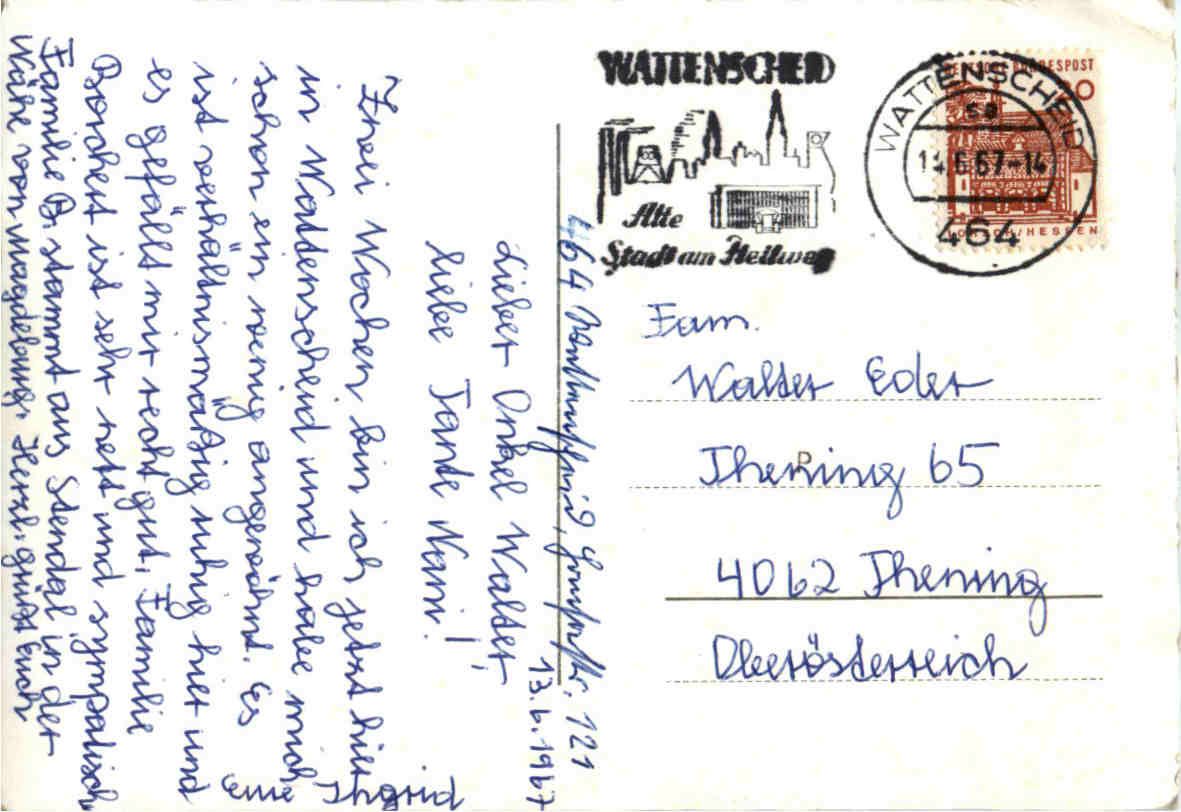 464 Wattenscheid, 121
13.6.1967
Lieber Onkel Walter,
liebe Tante Nani!
Zwei Wochen bin ich jetzt hier
in Wattenscheid und habe mich
schon ein wenig angewöhnt. Es
ist verhältnismäßig ruhig hier und
es gefällt mir recht gut. Familie
Borchert ist sehr nett und sympatisch
Familie B. stammt aus Stendal in der
Nähe von Magdeburg. Herzl. grüßt Euch
Eure Ingrid
WATTENSCHEID
Alte
Stadt am Hellweg
WATTENSCHEID
sa
14.6.67-14
464
DEUTSCHE BUNDESPOST
LORSCH/HESSEN
Fam.
Walter Eder
Thening 65
4062 Thening
Oberösterreich